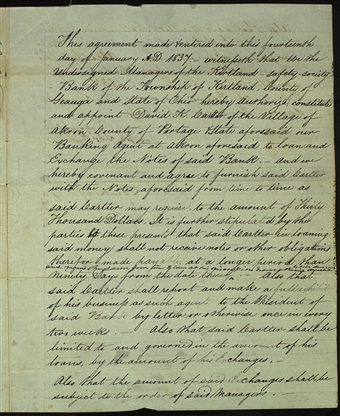 This agreement made & entered into this fourteenth
day of January A.D 1837 - witnesseth that We the
Undersigned Managers of the Kirtland safety society
- Bank of the Township of Kirtland County of
Geauga and State of Ohio hereby Authorize, constitute
and appoint David K. Carter of the Village of
Akron County of Portage State aforesaid our
Banking Agent at Akron aforesaid to loan and
Exchange the Notes of said Bank. - and we
hereby covenant and agree to furnish said Carter
with the Notes, aforesaid from time to time as
said Carter may require, to the amount of Thirty
Thousand Dollars. It is further stipulated by the
parties to these presents that said Carter in loaning
said money shall not receive notes or other obligations
therefor made payable at a longer period than
Ninety Days from the date thereof. - Also that
said Carter shall report and make a full exhibit
of his business as such agent to the President of
said Bank by letter or otherwise once in every
two weeks - Also that said Carter shall be
limited to and governed in the amount of his
loans, by the amount of his Exchanges. -
Also that the amount of said Exchanges shall be
subject to the order of said Managers.